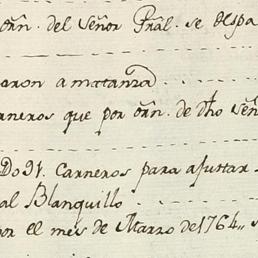 orñ. del Señor Gräl. se despa
aron a matanza
arneros que por orñ. de dho señ
Do 91. Carneros para ajustar
al Blanquillo
por el mes de Marzo de 1764,, s